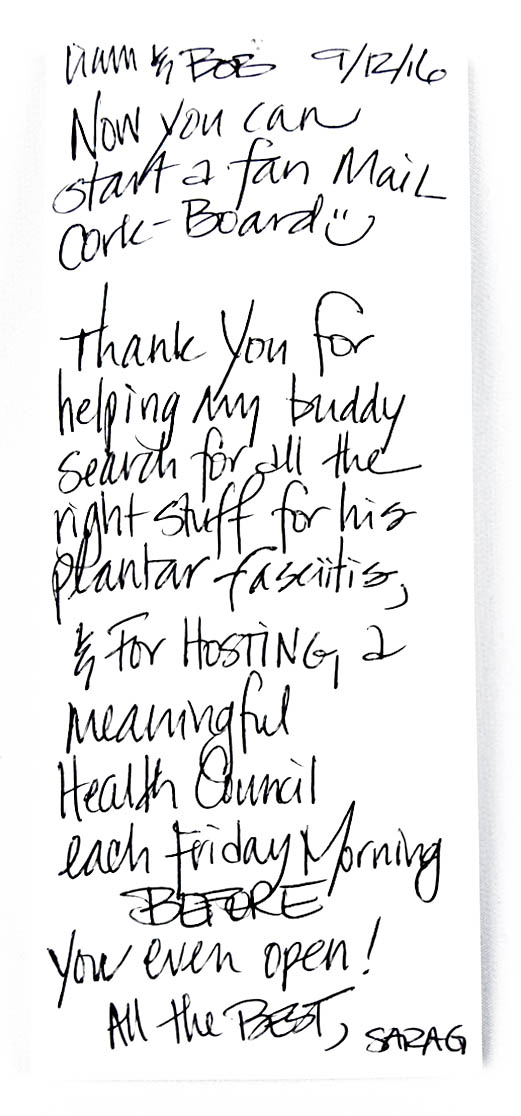 Liam & BOB 9/12/16
Now you can
start a fan Mail
Cork-Board :)
Thank You for
helping My buddy
search for all the
right stuff for his
plantar fasciitis,
& For HOSTING a
meaningful
Health Council
each Friday Morning
BEFORE
You even open!
All the BEST, SARAG